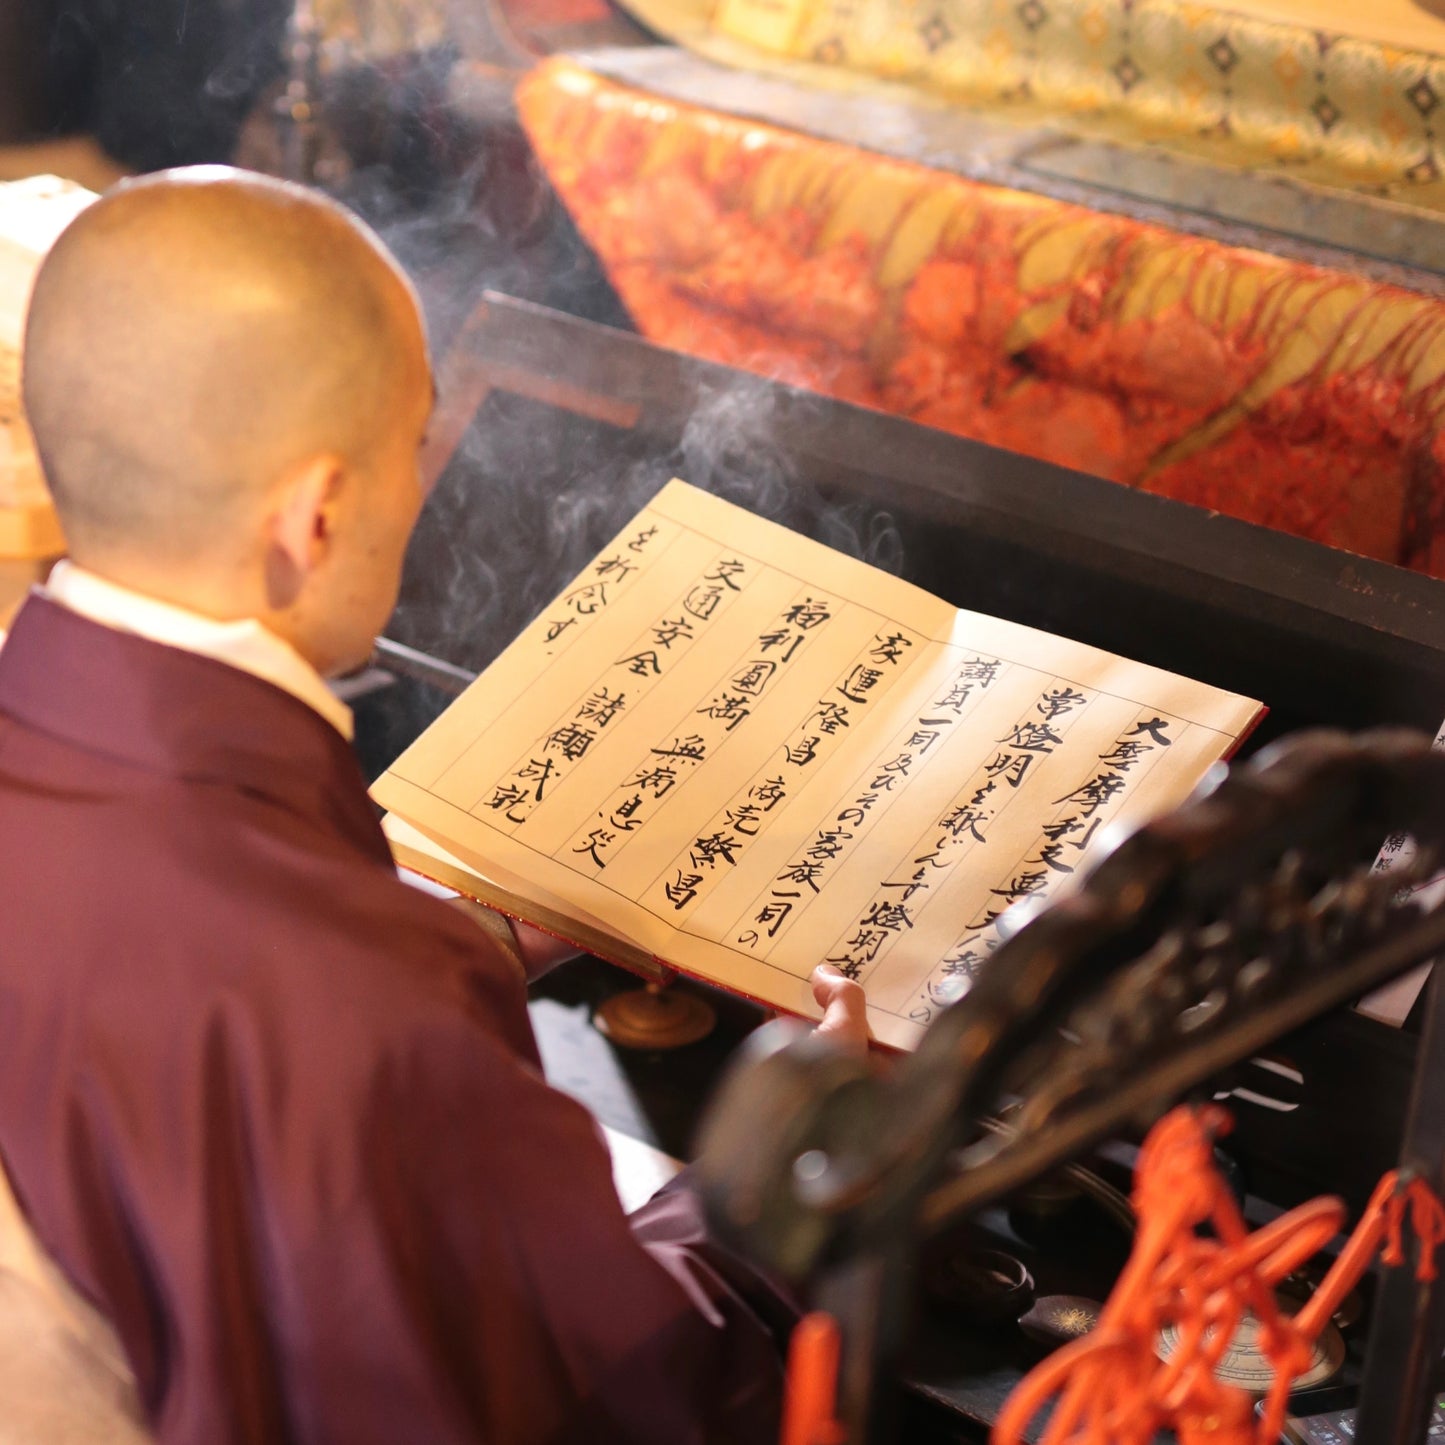 大聖摩利支尊天
常燈明を献じん
講員一同及びその家族一同の
家運隆昌 商売繁昌
福利圓満 無病息災
交通安全 諸願成就
を祈念す.